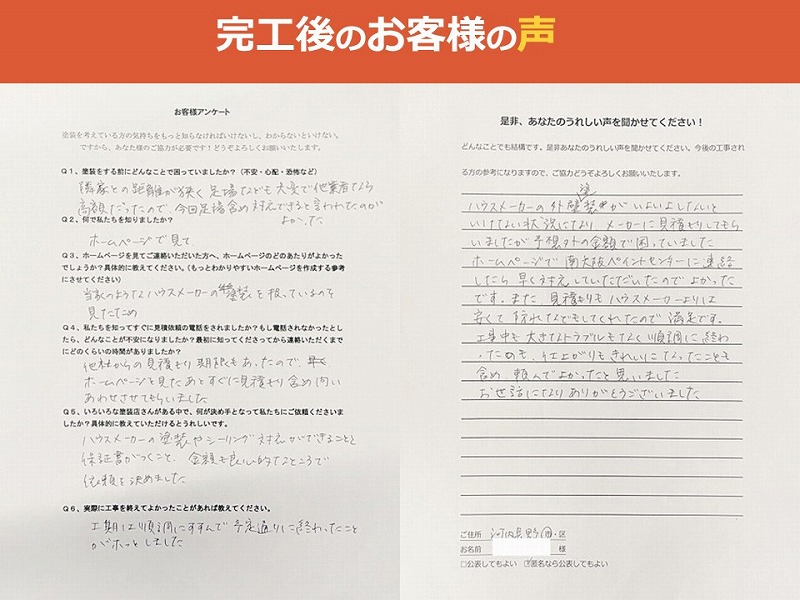 完工後のお客様の声
お客様アンケート
塗装を考えている方の気持ちをもっと知らなければいけないし、わからないといけない。
ですから、あなた様のご協力が必要です！どうぞよろしくお願いいたします。
Q1、塗装をする前にどんなことで困っていましたか？（不安・心配・恐怖など）
隣家との距離が狭く足場なども大変で他業者なら
高額だったので、今回足場含め対応できると言われたのが
よかった
Q2、何で私たちを知りましたか？
ホームページで見て
Q3、ホームページを見てご連絡いただいた方へ、ホームページのどのあたりがよかった
でしょうか？具体的に教えてください。（もっとわかりやすいホームページを作成する参考
にさせてください）
当家のようなハウスメーカーの塗装を扱っているのを
見たため
Q4、私たちを知ってすぐに見積依頼の電話をされましたか？もし電話されなかったとし
たら、どんなことが不安になりましたか？最初に知ってくださってから連絡いただくまで
にどのくらいの時間がありましたか？
他社からの見積もり期限もあったので、早く
ホームページを見たあとすぐに見積もり含め問い
あわせさせてもらいました
Q5、いろいろな塗装店さんがある中で、何が決め手となって私たちにご依頼くださいま
したか？具体的に教えていただけるとうれしいです。
ハウスメーカーの塗装やシーリング対応ができることと
保証書がつくこと、金額も良心的なところで
依頼を決めました
Q6、実際に工事を終えてよかったことがあれば教えてください。
工期は順調にすすんで予定通りに終わったこと
がホッとしました
是非、あなたのうれしい声を聞かせてください！
どんなことでも結構です。是非あなたのうれしい声を聞かせてください。今後の工事され
る方の参考になりますので、ご協力どうぞよろしくお願いいたします。
ハウスメーカーの外壁塗装がいよいよしないと
いけない状況になり メーカーに見積もりしてもら
いましたが予想外の金額で困っていました
ホームページで南大阪ペイントセンターに連絡
したら早く対応していただいたのでよかった
です。また 見積もりもハウスメーカーよりは
安くて 防水などもしてくれたので 満足です。
工事中も大きなトラブルもなく順調に終わ
ったのも、仕上がりもきれいになったことも
含め、頼んでよかったと思いました
お世話になり ありがとうございました
ご住所 河内長野市・区
お名前 様
□公表してもよい ☑匿名なら公表してもよい